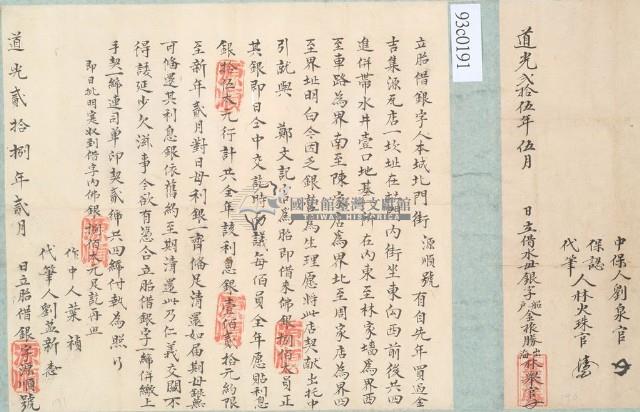 中保人劉泉官
保認人林火珠官
代筆
日立借水母銀字
船戶金振勝
出海林溪官
道光貳拾伍年伍月
93c0191
立胎借銀字人本城北門街源順號有自先年買過金
吉集源瓦店一坎址在內街坐東向西前後共四
進併帶水井壹口地基在內東至林家墻為界西
至車路為界南至陳家店為界北至周家店為界四
至界址明白今因乏銀營為生理愿將此店契獻出托中
引就與鄭文記為胎即借來佛銀捌佰大員正
其銀即日仝中交訖時議每佰員全年愿貼利息
銀拾伍大元行計共全年該利息銀壹佰貳拾元約限
至新年貳月對日母利銀一齊備足清還如屆期母銀無
可備還其利息銀依舊約至期清還此乃仁義交關不
得該延少欠滋事今欲有憑合立胎借銀字一紙併繳上
手契一紙連司單印契貳紙共四紙付執為照行
即日批明實收到借字內佛銀捌佰大元足訖再照
作中人葉禎
代筆人劉益新
道光貳拾捌年貳月日立胎借銀字源順號
國史館臺灣文獻館
TAIWAN HISTORICA